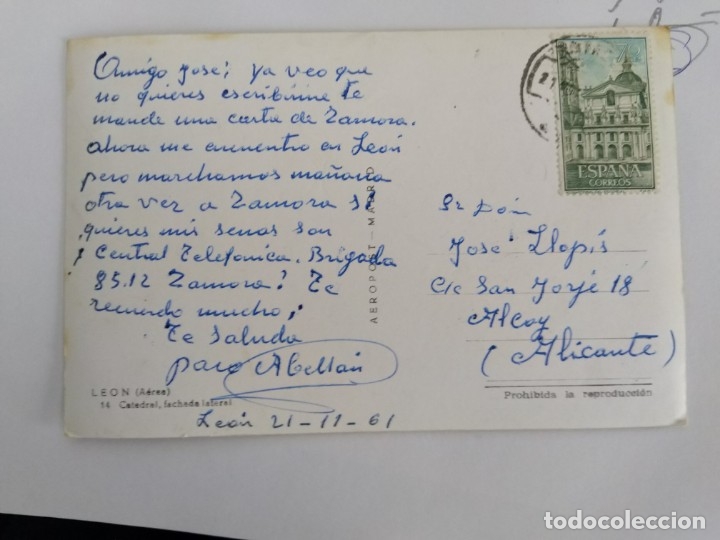 Amigo José; ya veo que
no quieres escribirme te
mande una carta de Zamora.
ahora me encuentro en León
pero marchamos mañana
otra vez a Zamora si
quieres mis senas son
Central Telefonica. Brigada
85.12 Zamora? Te
recuerdo mucho;
Te Saluda
paco Abellán
LEON (Aérea)
14 Catedral, fachada lateral
León 21-11-61
AEROPOST - MADRID
ESPAÑA
CORREOS
Sr Dón
José Llopis
C/c San Jorjé 18
Alcoy
(Alicante)
Prohibida la reproducción
todocoleccion
todocoleccion.net